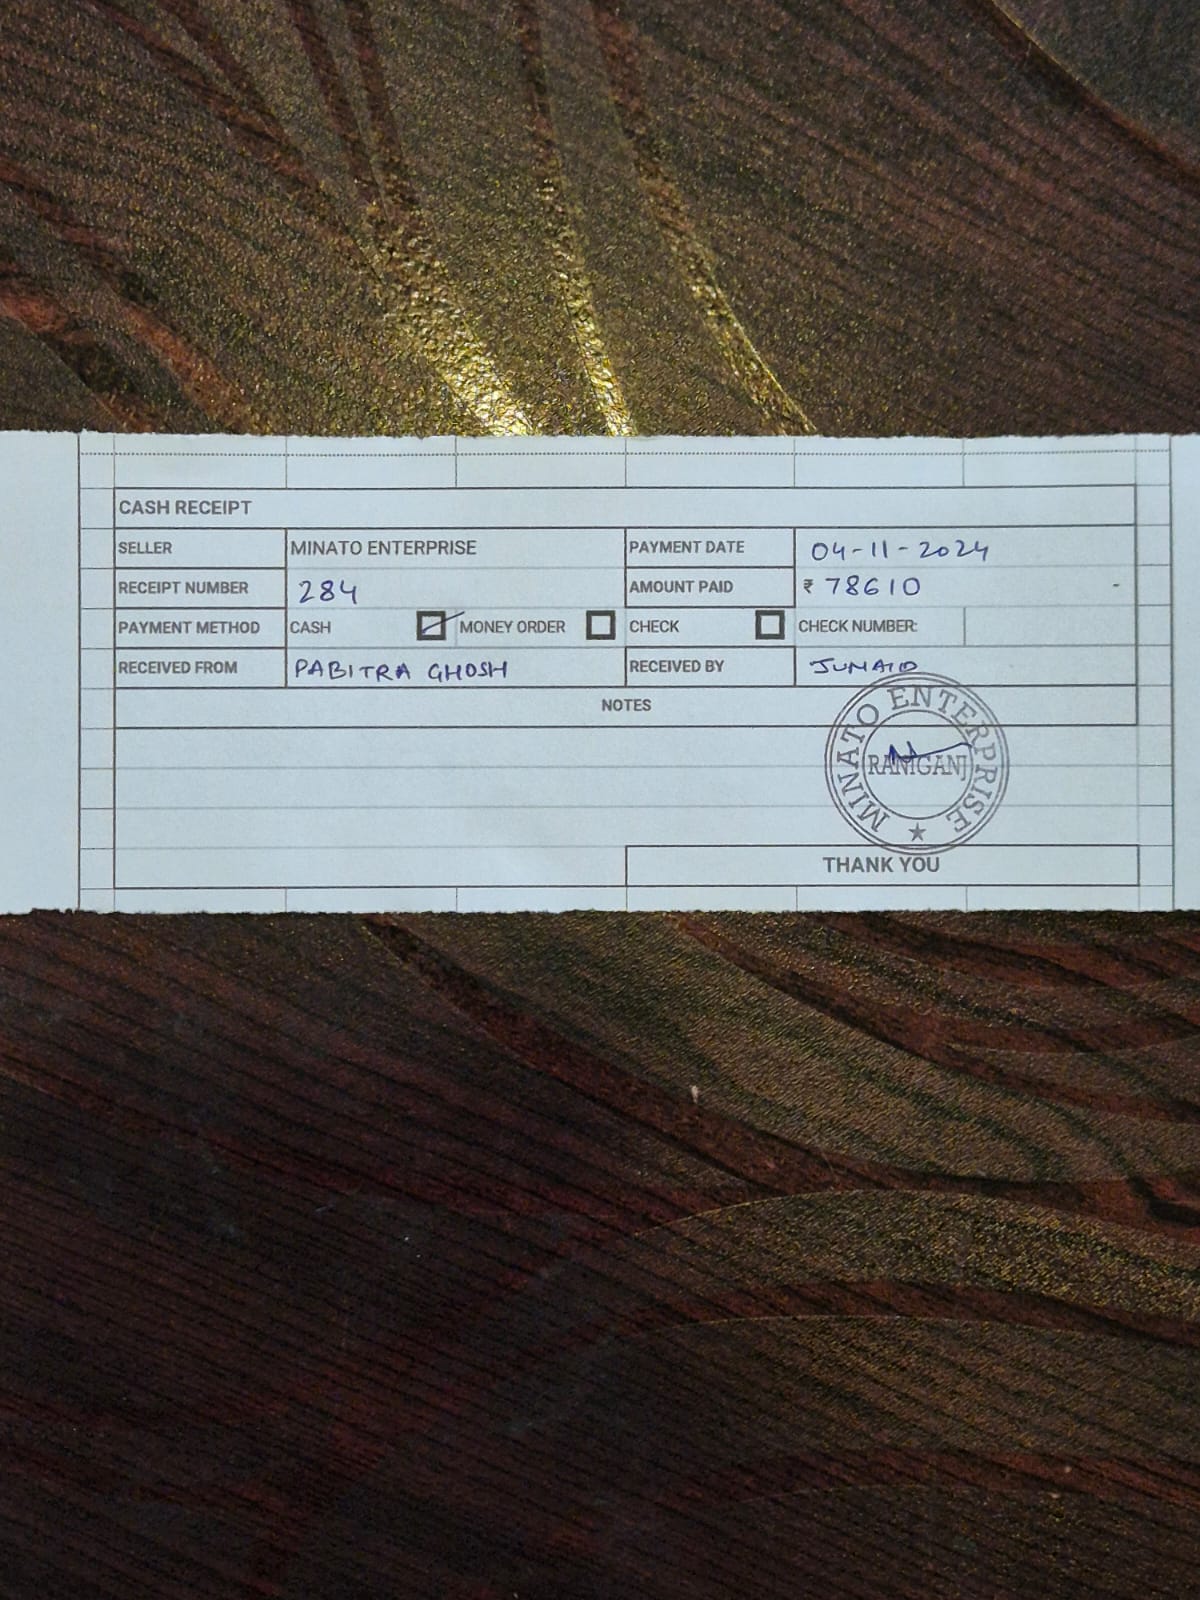 CASH RECEIPT
SELLER MINATO ENTERPRISE PAYMENT DATE 04-11-2024
RECEIPT NUMBER 284 AMOUNT PAID ₹ 78610 -
PAYMENT METHOD CASH MONEY ORDER CHECK CHECK NUMBER:
RECEIVED FROM PABITRA GHOSH RECEIVED BY JUNAID
NOTES
MINATO ENTERPRISE
RANIGANJ
THANK YOU